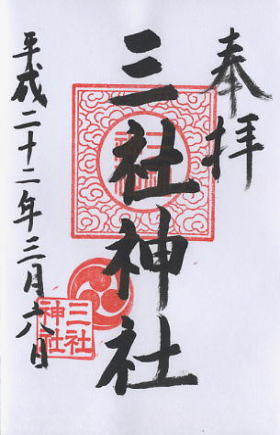 奉拝
三社神社
平成二十二年三月六日
三社
神社